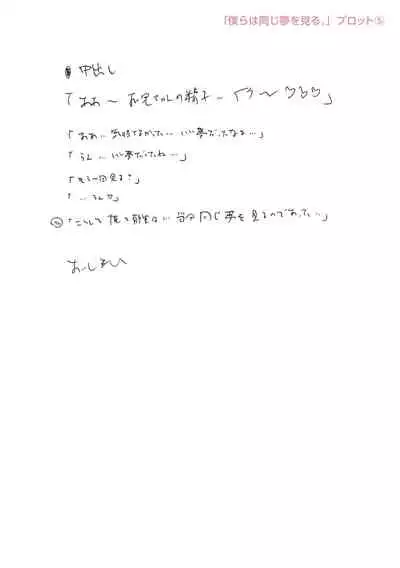 「僕らは同じ夢を見る。」プロット⑤
中出し
「ああ〜お兄ちゃんの精子…〜♡♡♡」
「ああ…気持ちよかった…いい夢だったなぁ…」
「うん…いい夢だったね…」
「もう一回見る?」
「…うん♡」
「こうして俺と…同じ夢を見るのであった…」
おーしまい